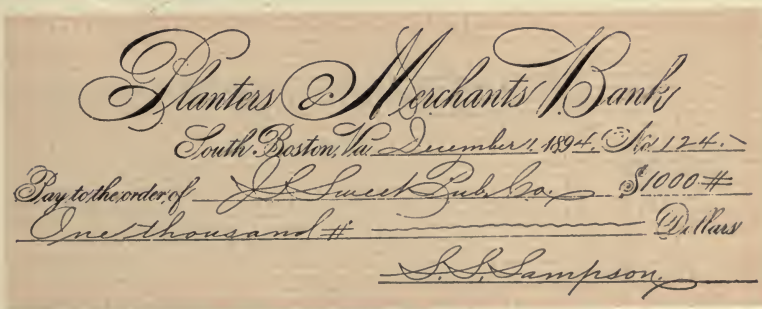 Planters & Merchants Bank
South Boston, Va. December 1, 1894. No. 124.
Pay to the order of J. S. Sweet Pub. Co. $1000 #
One thousand # Dollars
S. S. Sampson.